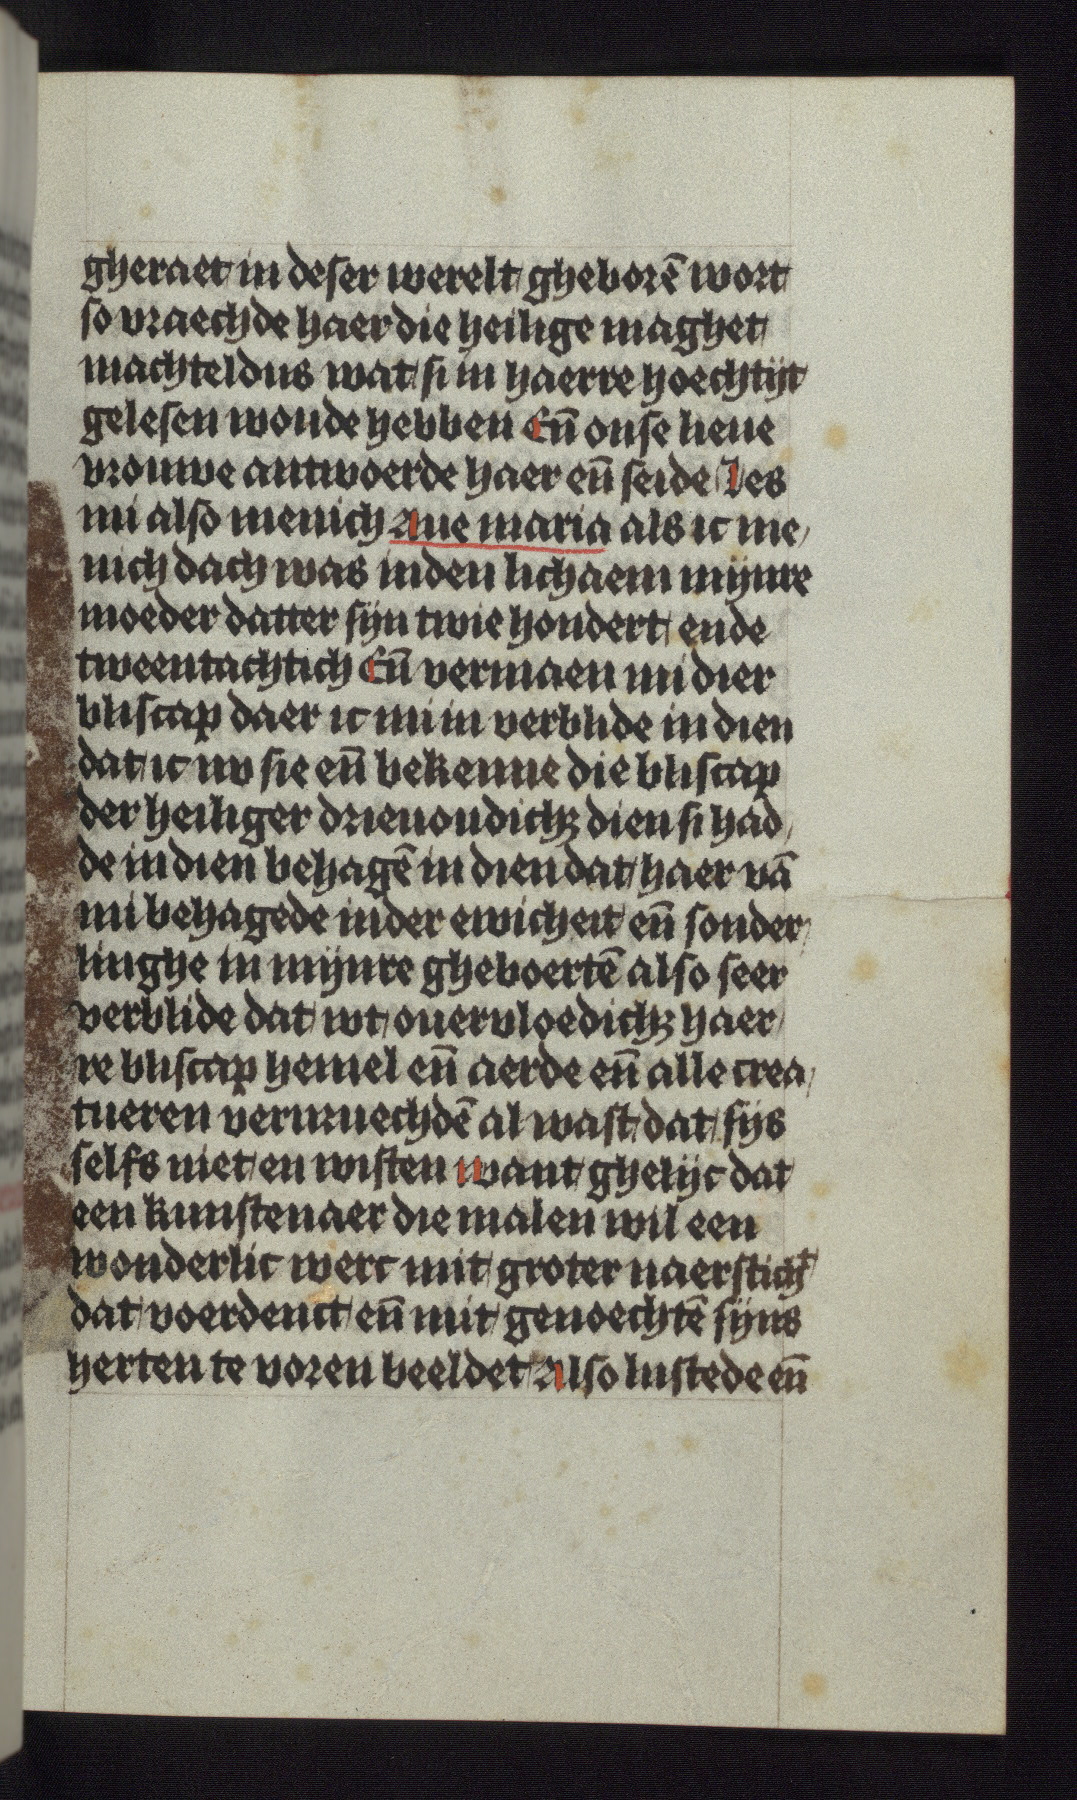 gheraet in deser werelt gheborē wort
so vraechde haer die heilige maghet
machteldus wat si in haerre hoechtijt
gelesen woude hebben Eñ onse lieue
vrouwe antwoerde haer eñ seide Les
mi also menich Aue maria als ic me/
nich dach was inden lichaem mijnre
moeder datter sijn twie hondert ende
tweentachtich Eñ vermaen mi dier
bliscap daer ic mi in verblide in dien
dat ic nv sie eñ bekenne die bliscap
der heiliger drieuoudichꝫ dien si had/
de in dien behagē in dien dat haer vā
mi behagede inder ewicheit eñ sonder/
linghe in mijnre gheboertē also seer
verblide dat wt ouervloedichꝫ haer/
re bliscap hemel eñ aerde eñ alle crea/
tueren vervruechdē al wast dat sijs
selfs niet en wisten want ghelijc dat
een kunstenaer die malen wil een
wonderlic werc mit groter naersticht
dat voerdenct eñ mit genoechtē sijns
herten te voren beeldet Also lustede eñ